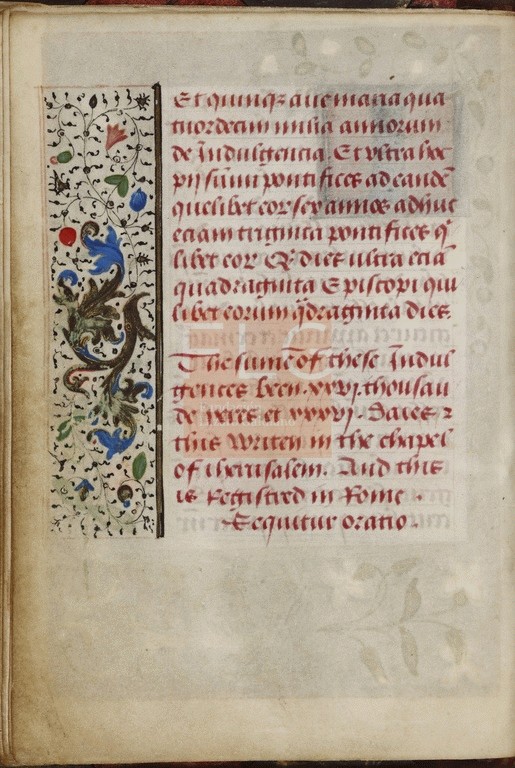 Et quinqȝ aue maria qua
tuordecim milia annorum
de Indulgencia. Et vltra hec
pij sūmi pontifices ad eandē
quelibet eor sex annos adhuc
eciam triginta pontifices qͥ
libet eor dies ultra eciā
quadraginta Episcopi qui
libet eorum qͣdraginta dies.
The sum̄e of these Indul
gences been .xxvj. thousan
de yeres et xxxvj. daies ⁊
this writen in the chapel
of iherusalem. And this
is Registred in Rome.
Sequitur oratio.